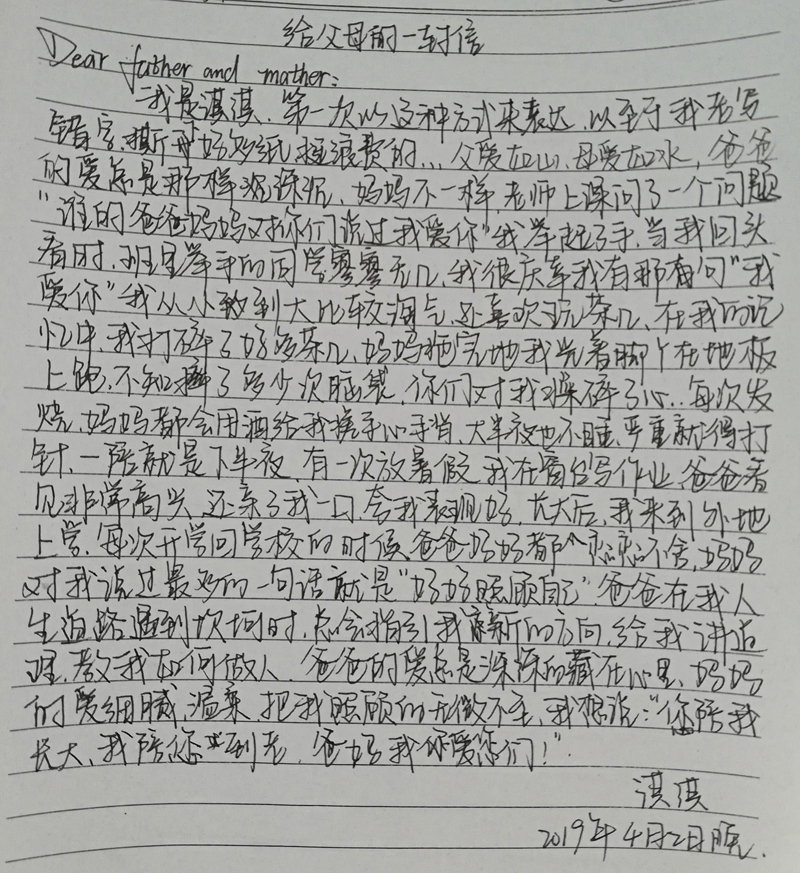 给父母的一封信
Dear father and mather:
我是淇淇，第一次以这种方式来表达，以至于我老写
错字，撕了好多纸 挺浪费的... 父爱如山，母爱如水，爸爸
的爱总是那样深沉，妈妈不一样，老师上课问了一个问题
"谁的爸爸妈妈对你们说过我爱你"我举起了手，当我回头
看时，班里举手的同学寥寥无几，我很庆幸我有那句"我
爱你"我从小致到大比较淘气，还喜欢玩茶几，在我的记
忆中，我打碎了好多茶几，妈妈拖完地我光着脚丫在地板
上跑，不知摔了多少次脑袋，你们对我操碎了心... 每次发
烧，妈妈都会用酒给我搓手心手背，大半夜也不睡，严重就得打
针，一陪就是下半夜，有一次放暑假，我在窗台写作业，爸爸看
见非常高兴，还亲了我一口，夸我表现好，长大后，我来到外地
上学，每次开学回学校的时候，爸爸妈妈都恋恋不舍，妈妈
对我说过最多的一句话就是"好好照顾自己"，爸爸在我人
生道路遇到坎坷时，总会指引我新的方向，给我讲道
理，教我如何做人，爸爸的爱总是深深的藏在心里，妈妈
的爱细腻，温柔，把我照顾的无微不至，我想说："您陪我
长大，我陪您到老，爸妈我爱你们！"
淇淇
2019年4月2日晚.